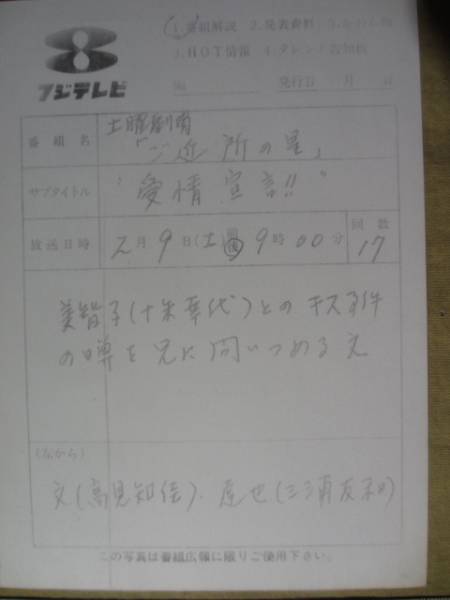 1.番組解説 2.発表資料
3.HOT情報 4.タレント
フジテレビ
No.
発行日 月 日
番組名
土曜劇場
「ご近所の星」
サブタイトル
“愛情宣言!!”
放送日時
2月9日(土)前後9時00分
回数
17
美智子(十朱幸代)とのキス事件
の噂を兄に問いつめる文
(左から)
文(高見知佳)、達也(三浦友和)
この写真は番組広報に限りご使用下さい。